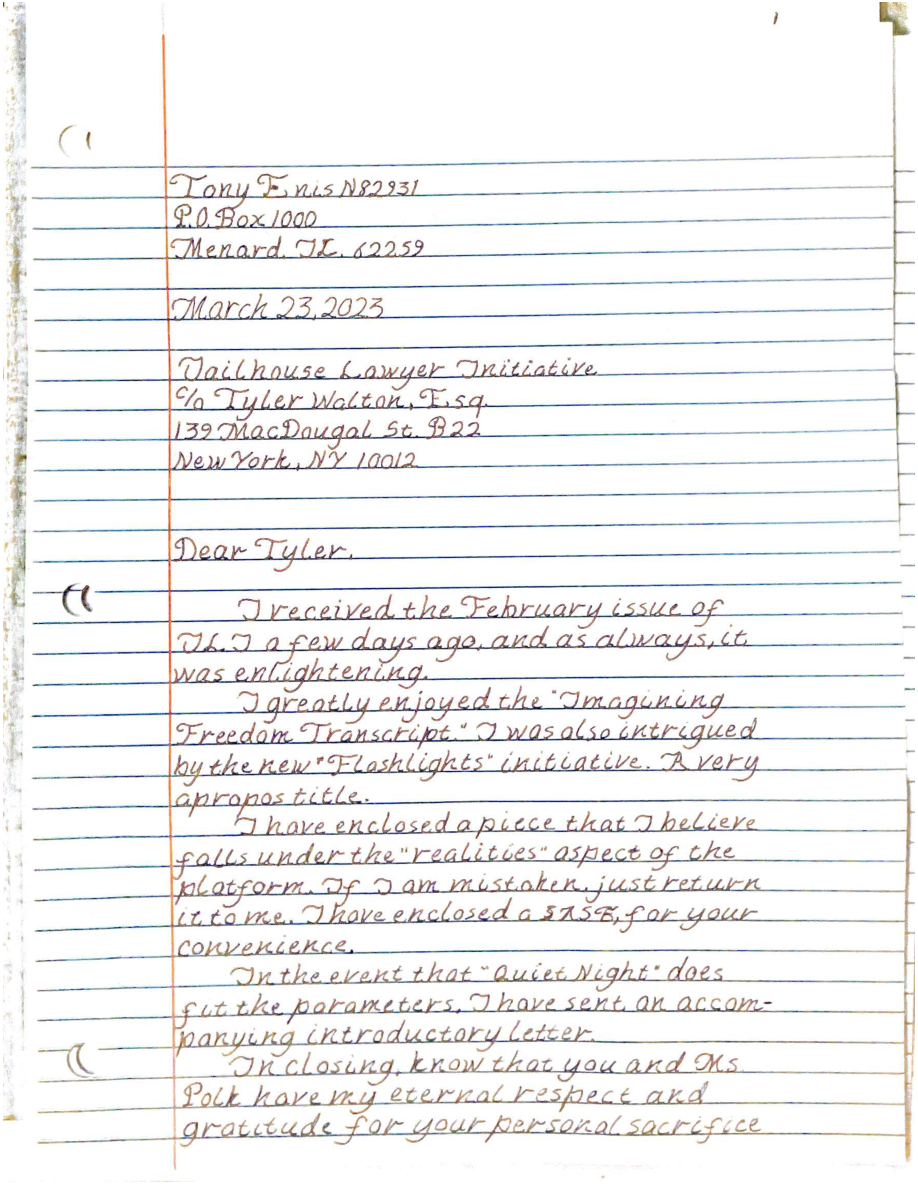 1
Tony Enis N82931
P.O. Box 1000
Menard. IL. 62259
March 23, 2023
Jailhouse Lawyer Initiative
c/o Tyler Walton, Esq.
139 MacDougal St. B22
New York, NY 10012
Dear Tyler,
I received the February issue of
JLI a few days ago, and as always, it
was enlightening.
I greatly enjoyed the "Imagining
Freedom Transcript." I was also intrigued
by the new "Flashlights" initiative. A very
apropos title.
I have enclosed a piece that I believe
falls under the "realities" aspect of the
platform. If I am mistaken, just return
it to me. I have enclosed a SASE, for your
convenience.
In the event that "Quiet Night" does
fit the parameters, I have sent an accom-
panying introductory letter.
In closing, know that you and Ms.
Polk have my eternal respect and
gratitude for your personal sacrifice